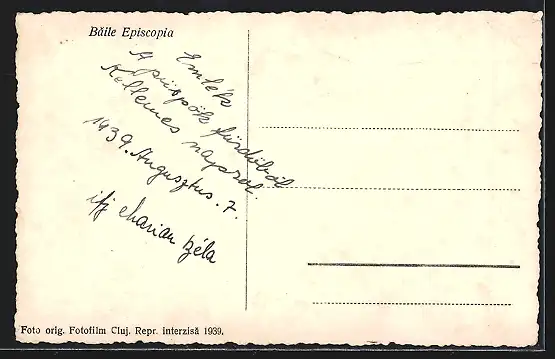 Băile Episcopia
Emlék
A püspök fürdőből
Kellemes napszal.
1939. Augusztus. 7.
ifj Béla
Foto orig. Fotofilm Cluj. Repr. interzisă 1939.